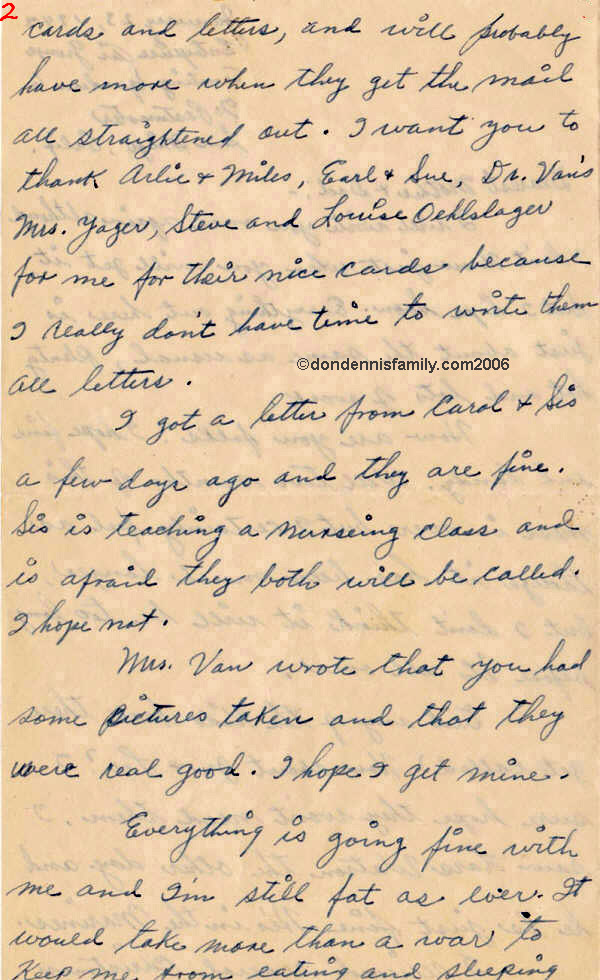 2
cards and letters, and will probably
have more when they get the mail
all straightened out. I want you to
thank Arlie & Miles, Earl & Sue, Dr. Van's
Mrs. Yager, Steve and Louise Oehlslager
for me for their nice cards because
I really don't have time to write them
all letters.
©dondennisfamily.com2006
I got a letter from Carol & Sis
a few days ago and they are fine.
Sis is teaching a nurseing class and
is afraid they both will be called.
I hope not.
Mrs. Van wrote that you had
some pictures taken and that they
were real good. I hope I get mine.
Everything is going fine with
me and I'm still fat as ever. It
would take more than a war to
keep me from eating and sleeping